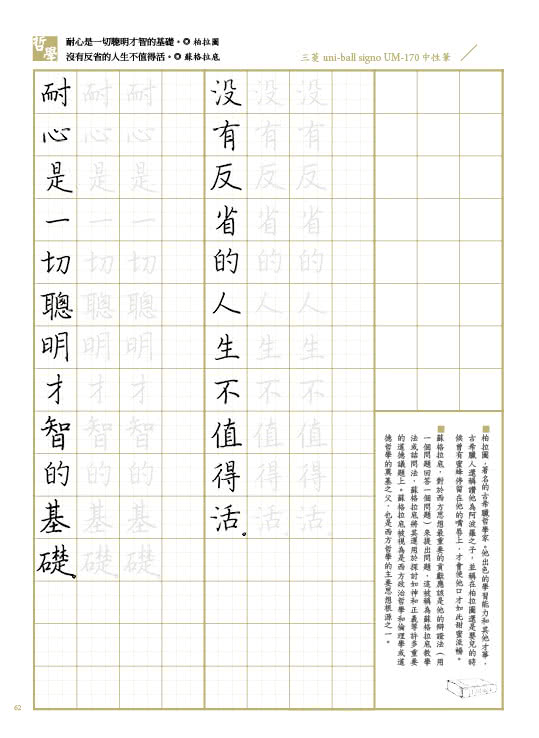 哲學
耐心是一切聰明才智的基礎。✪ 柏拉圖
沒有反省的人生不值得活。✪ 蘇格拉底
三菱 uni-ball signo UM-170 中性筆
耐心是一切聰明才智的基礎。
耐心是一切聰明才智的基礎
耐心是一切聰明才智的基礎
沒有反省的人生不值得活。
沒有反省的人生不值得活
沒有反省的人生不值得活
■柏拉圖，著名的古希臘哲學家。他出色的學習能力和其他才華，
古希臘人還稱讚他為阿波羅之子，並稱在柏拉圖還是嬰兒的時
候曾有蜜蜂停留在他的嘴唇上，才會使他口才如此甜蜜流暢。
■蘇格拉底，對於西方思想最重要的貢獻應該是他的辯證法（用
一個問題回答一個問題）來提出問題，這被稱為蘇格拉底教學
法或詰問法，蘇格拉底將其運用於探討如神和正義等許多重要
的道德議題上。蘇格拉底被視為是西方政治哲學和倫理學或道
德哲學的奠基之父，也是西方哲學的主要思想根源之一。
62